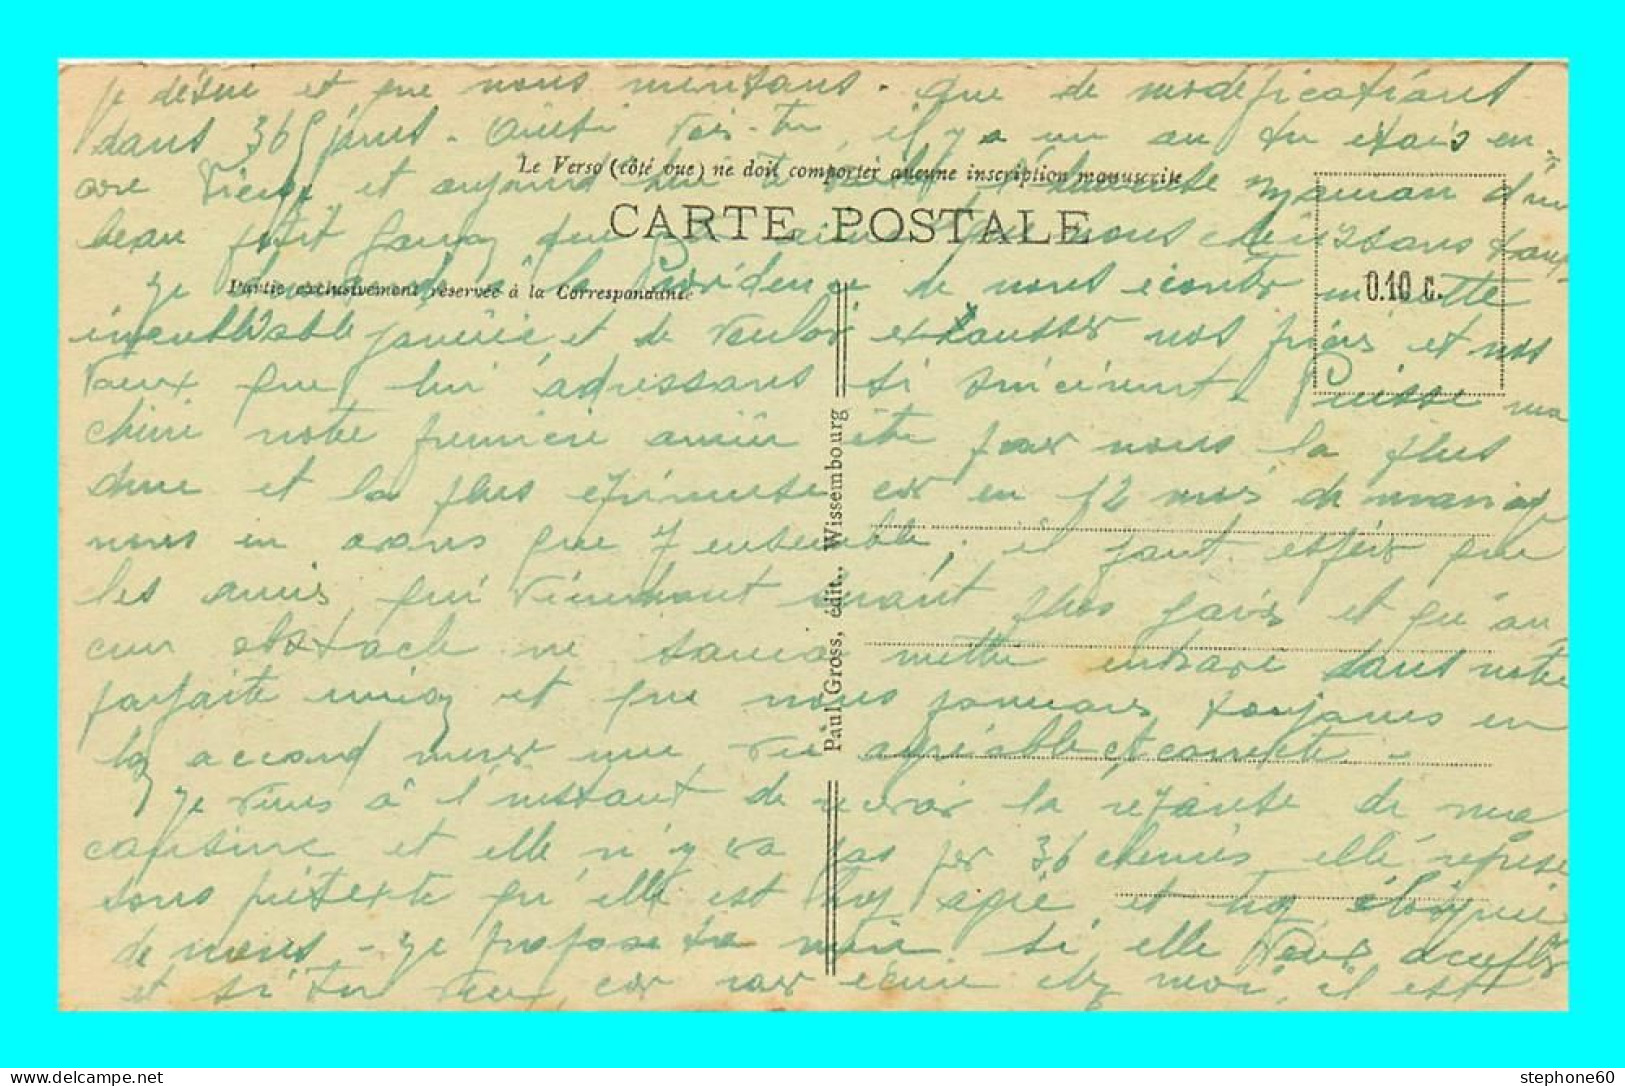 je désire et que nous méritons. Que de modifications
dans 365 jours. Ainsi vois-tu, il y a un an tu étais en-
Le Verso (côté vue) ne doit comporter aucune inscription manuscrite
core et aujourd'hui te maman d'un
CARTE POSTALE
beau petit garçon que nous chérissons tant,
je demande à la Providence de nous écouter en cette
Partie exclusivement réservée à la Correspondance
0.10 c.
inoubliable journée et de vouloir exhausser nos prières et nos
vœux que lui adressons si sincèrement. Puisse ma
chérie notre première année être pour nous la plus
dure et la plus épineuse car en 12 mois de mariage
nous en avons que 7 ensemble, il faut espérer que
les années qui viendront seront plus gaies et qu'au-
cun obstacle ne saura mettre entrave dans notre
parfaite union et que nous pourrons toujours en
bon accord mener une vie agréable et correcte. -
Je viens à l'instant de recevoir la réponse de ma
cousine et elle n'y va pas par 36 chemins, elle refuse
sous prétexte qu'elle est trop âgée et trop éloignée
de nous - Je propose ta mère si elle veut accepter
et si tu veux, car pour chez moi, il est
Paul Gross, édit., Wissembourg
stephone60